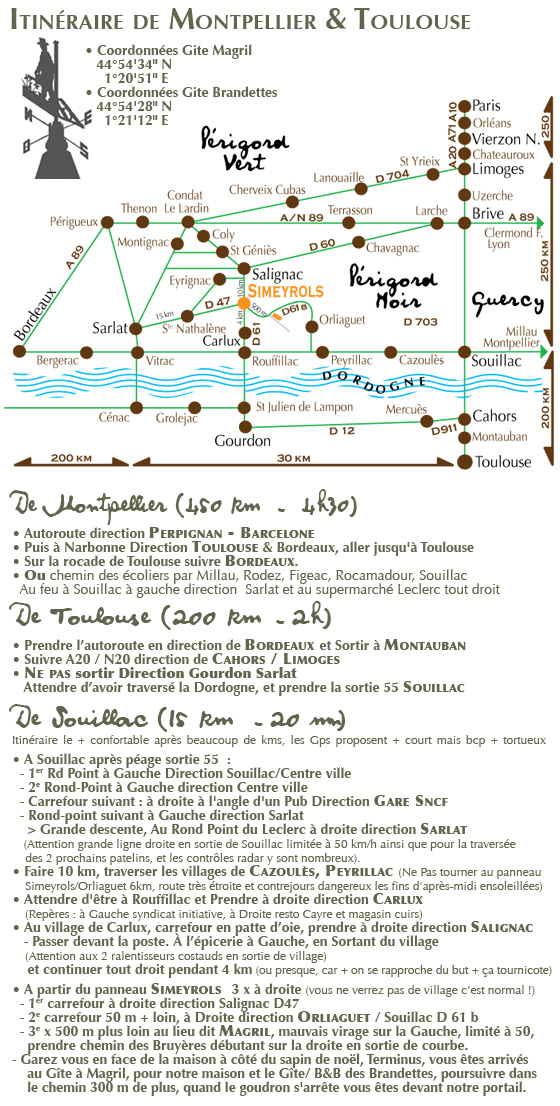 ITINÉRAIRE DE MONTPELLIER & TOULOUSE
• Coordonnées Gite Magril
44°54'34" N
1°20'51" E
• Coordonnées Gite Brandettes
44°54'28" N
1°21'12" E
Périgord Vert
Paris
Orléans
Vierzon N.
Chateauroux
Limoges
A20 A71 A10
250
St Yrieix
D 704
Lanouaille
Cherveix Cubas
Uzerche
Condat
Le Lardin
Thenon
Périgueux
A/N 89
Terrasson
Larche
Brive
A 89
Clermond F.
Lyon
Coly
Montignac
St Géniès
D 60
Chavagnac
A 89
Salignac
Eyrignac
10 km
SIMEYROLS
Périgord Noir
Quercy
250 KM
Bordeaux
D 47
15 km
500 m
D61B
Sarlat
Ste Nathalène
4 km
D 61
Orliaguet
D 703
Carlux
Millau
Montpellier
Bergerac
Vitrac
Rouffillac
Peyrillac
Cazoulès
Souillac
DORDOGNE
200 KM
Cénac
Grolejac
St Julien de Lampon
Mercuès
Cahors
Gourdon
D 12
D911
Montauban
200 KM
30 KM
Toulouse
De Montpellier (450 km - 4h30)
• Autoroute direction PERPIGNAN - BARCELONE
• Puis à Narbonne Direction TOULOUSE & Bordeaux, aller jusqu'à Toulouse
• Sur la rocade de Toulouse suivre BORDEAUX.
• Ou chemin des écoliers par Millau, Rodez, Figeac, Rocamadour, Souillac
Au feu à Souillac à gauche direction Sarlat et au supermarché Leclerc tout droit
De Toulouse (200 km - 2h)
• Prendre l'autoroute en direction de BORDEAUX et Sortir à MONTAUBAN
• Suivre A20 / N20 direction de CAHORS / LIMOGES
• NE PAS sortir Direction Gourdon Sarlat
Attendre d'avoir traversé la Dordogne, et prendre la sortie 55 SOUILLAC
De Souillac (15 km - 20 mn)
Itinéraire le + confortable après beaucoup de kms, les Gps proposent + court mais bcp + tortueux
• A Souillac après péage sortie 55 :
- 1er Rd Point à Gauche Direction Souillac/Centre ville
- 2e Rond-Point à Gauche direction Centre ville
- Carrefour suivant : à droite à l'angle d'un Pub Direction GARE SNCF
- Rond-point suivant à Gauche direction Sarlat
> Grande descente, Au Rond Point du Leclerc à droite direction SARLAT
(Attention grande ligne droite en sortie de Souillac limitée à 50 km/h ainsi que pour la traversée
des 2 prochains patelins, et les contrôles radar y sont nombreux).
• Faire 10 km, traverser les villages de CAZOULÈS, PEYRILLAC (Ne Pas tourner au panneau
Simeyrols/Orliaguet 6km, route très étroite et contrejours dangereux les fins d'après-midi ensoleillées)
• Attendre d'être à Rouffillac et Prendre à droite direction CARLUX
(Repères : à Gauche syndicat initiative, à Droite resto Cayre et magasin cuirs)
• Au village de Carlux, carrefour en patte d'oie, prendre à droite direction SALIGNAC
- Passer devant la poste. À l'épicerie à Gauche, en Sortant du village
(Attention aux 2 ralentisseurs costauds en sortie de village)
et continuer tout droit pendant 4 km (ou presque, car + on se rapproche du but + ça tournicote)
• A partir du panneau SIMEYROLS 3 x à droite (vous ne verrez pas de village c'est normal !)
- 1er carrefour à droite direction Salignac D47
- 2e carrefour 50 m + loin, à Droite direction ORLIAGUET / Souillac D 61 b
- 3e x 500 m plus loin au lieu dit MAGRIL, mauvais virage sur la Gauche, limité à 50,
prendre chemin des Bruyères débutant sur la droite en sortie de courbe.
- Garez vous en face de la maison à côté du sapin de noël, Terminus, vous êtes arrivés
au Gîte à Magril, pour notre maison et le Gîte/ B&B des Brandettes, poursuivre dans
le chemin 300 m de plus, quand le goudron s'arrête vous êtes devant notre portail.